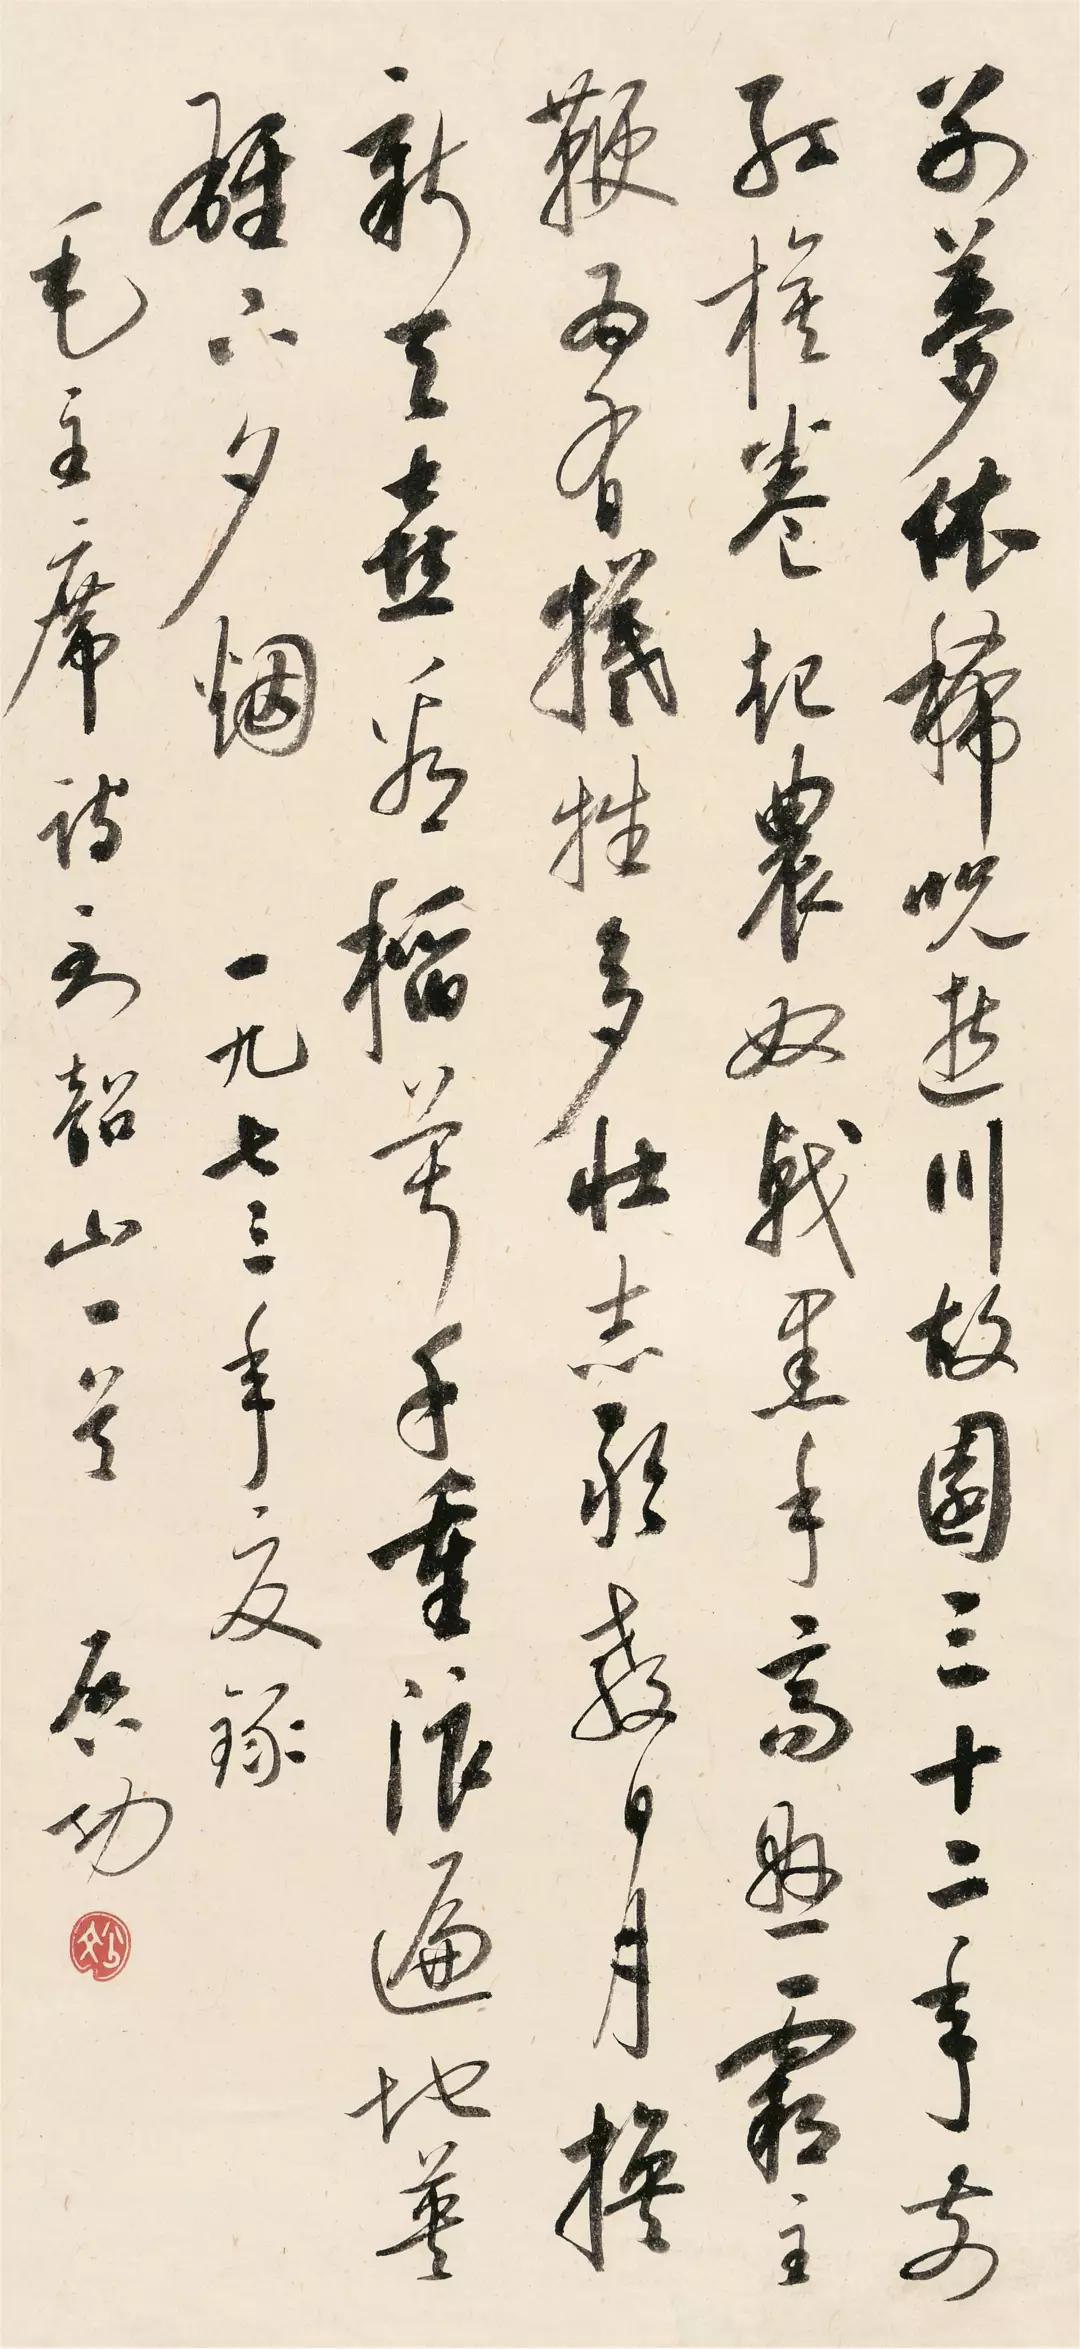 别夢依稀呪逝川故園三十二年前
红旗卷起農奴戟黑手高懸霸主
鞭為有犧牲多壮志敢教日月换
新天喜看稻菽千重浪遍地英
雄下夕烟 一九七三年夏録
毛主席詩到韶山一首 启功